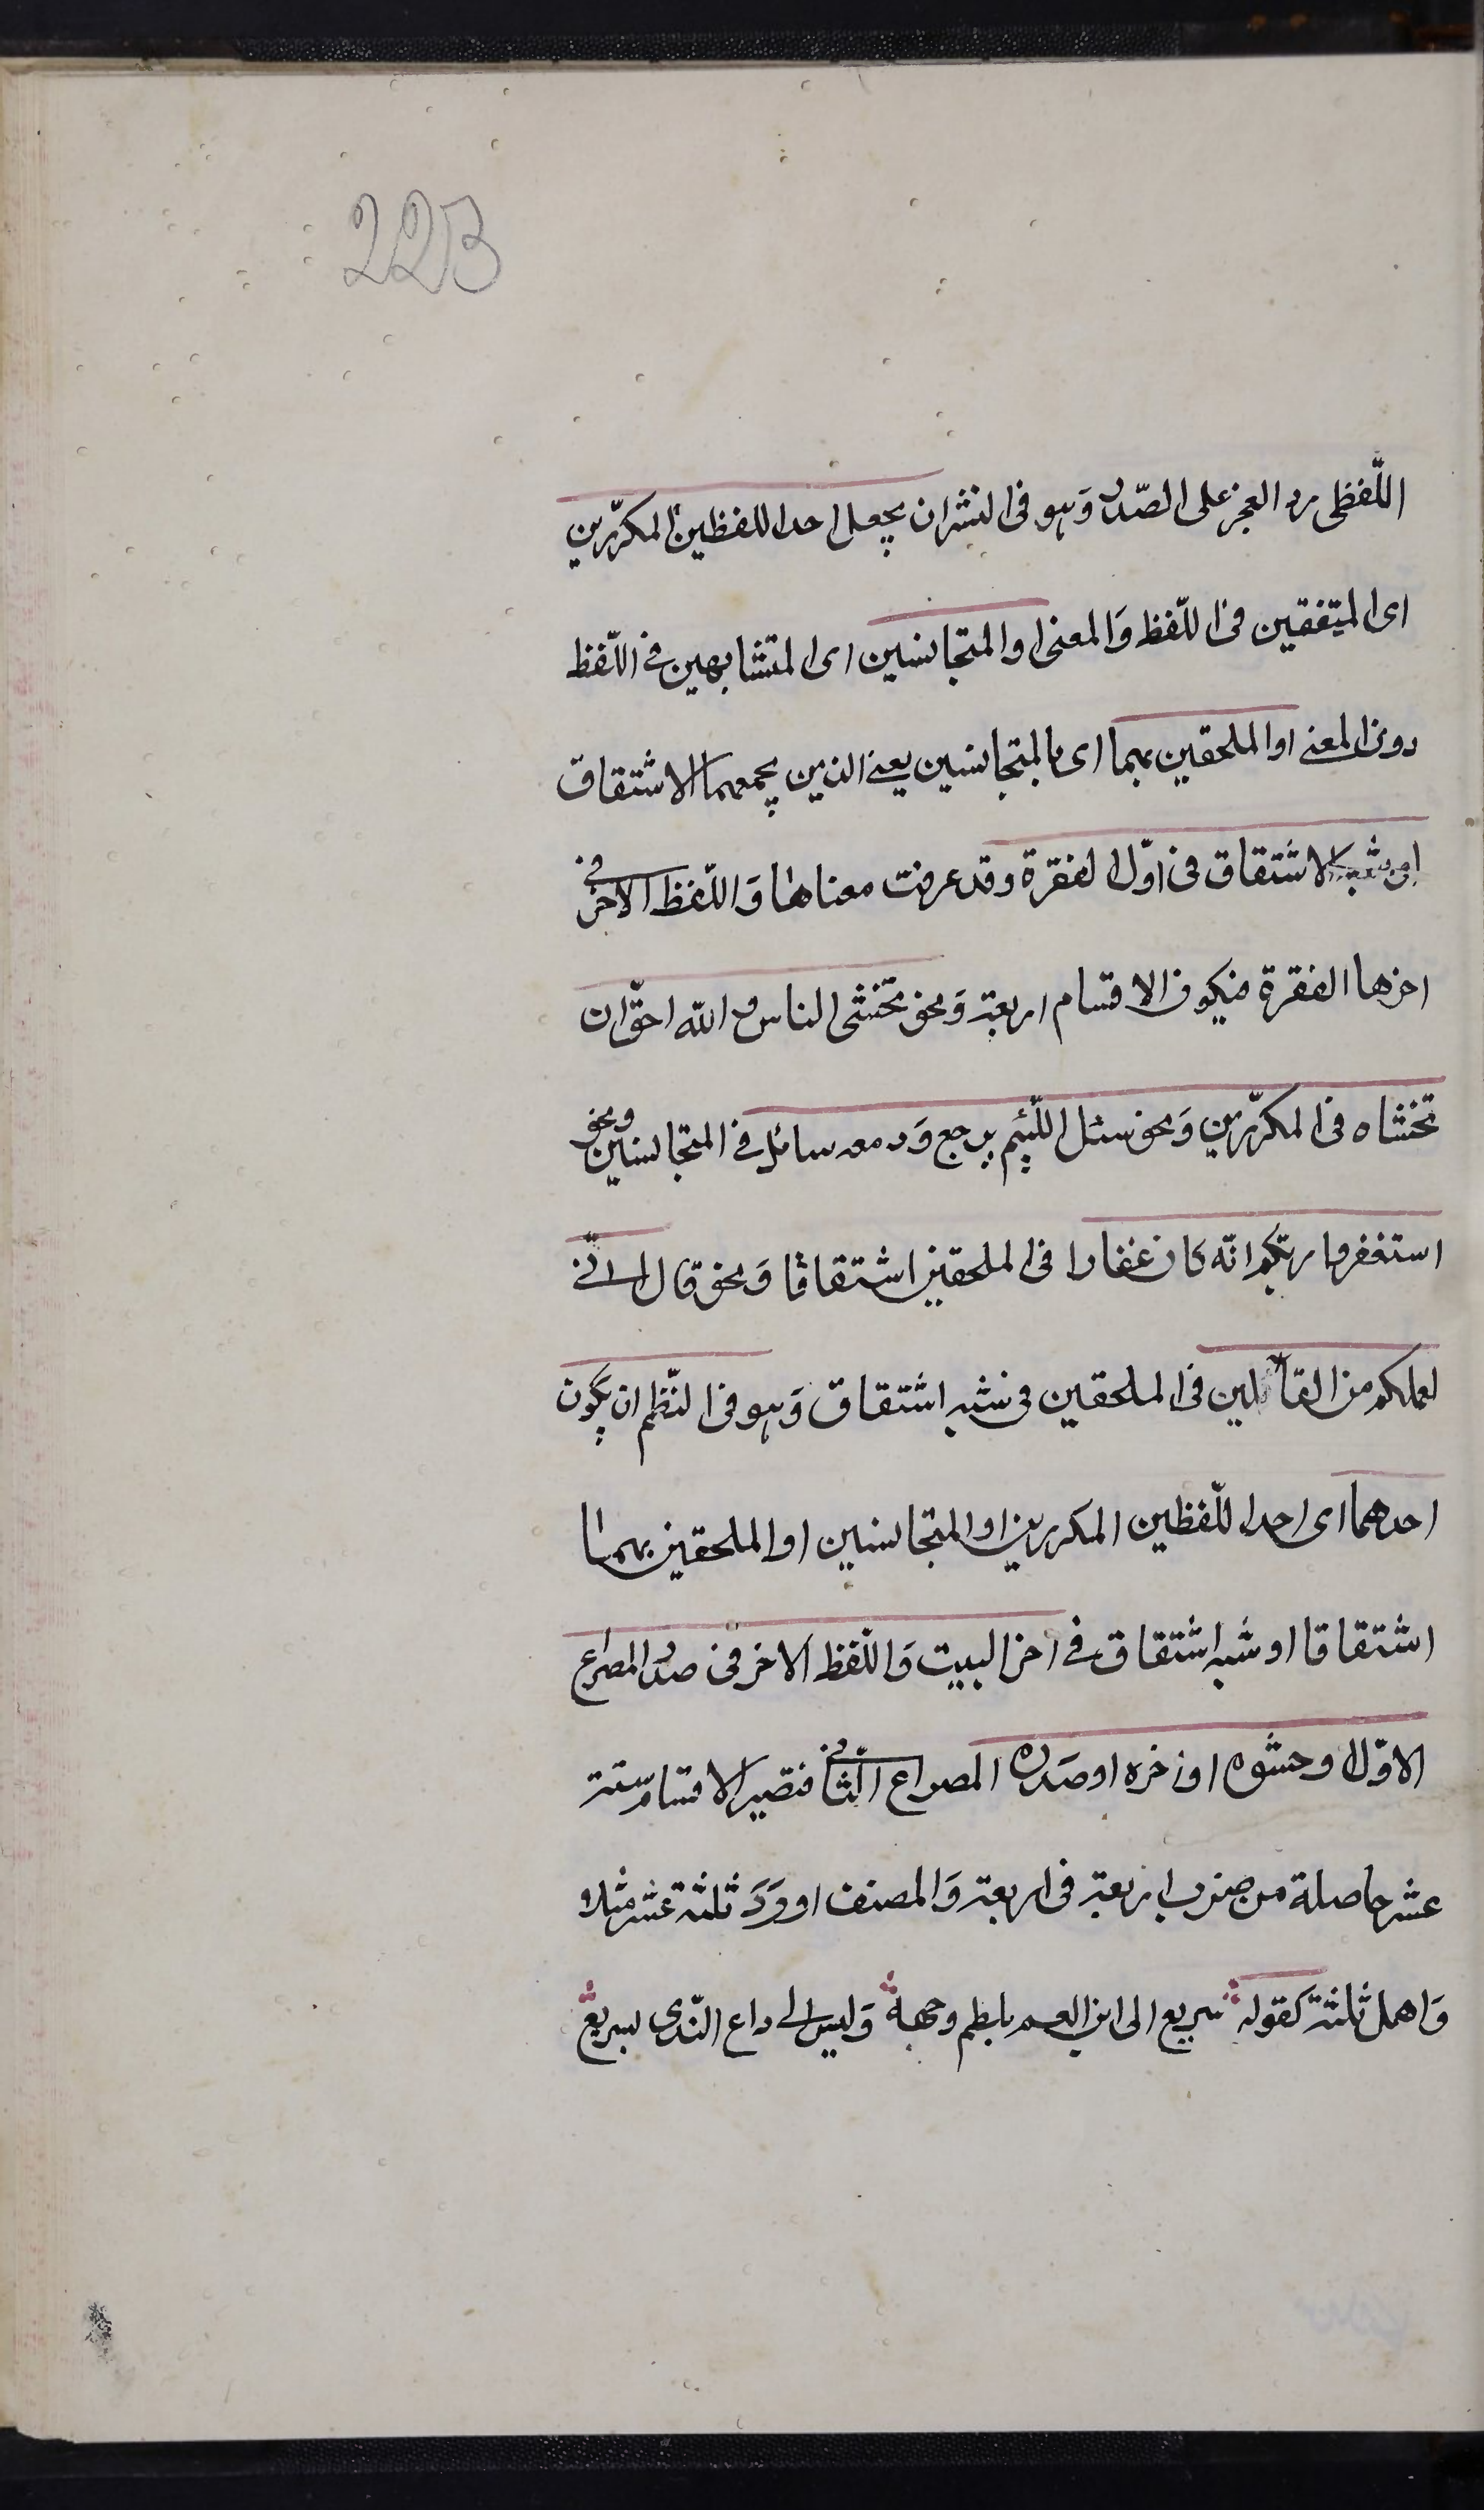 223
اللّفظى رد العجز على الصّدر وَهو فى النثر ان يجعل احد اللفظين المكرّرين
اى المتفقين فى اللّفظ وَالمعنى او المتجانسين اى المتشابهين فى اللّفظ
دون المعنى او الملحقين بهما اى بالمتجانسين يعنى الذين يجمعهما الاشتقاق
او شبه الاشتقاق فى اوّل الفقرة وقد عرفت معناها وَاللّفظ الاخر فى
اخرها الفقرة فيكون الاقسام اربعة وَنحو تخشى الناس و الله احقّ ان
تخشاه فى المكرّرين وَنحو سئل اللّئيم يرجع وَدمعه سائل فى المتجانسين ونحو
استغفروا ربكم انّه كان غفارا فى الملحقين اشتقاقا وَنحو قال انّى
لعملكم من القائلين فى الملحقين فى شبه اشتقاق وَهو فى النّظم ان يكون
احدهما اى احد اللّفظين المكررين او المتجانسين او الملحقين بهما
اشتقاقا او شبه اشتقاق فى اخر البيت وَاللّفظ الاخر فى صدر المصراع
الاوّل او حشوه او اخره او صَدره المصراع الثّانى فتصير الاقسام ستة
عشر حاصلة من ضرب اربعة فى اربعة وَالمصنف اوورَدَ ثلثة عشر مثلا
وَاهمل ثلثة كقوله سريع الى ابن العم يلطم وجهه وَليس الى داع النّدى بسريع